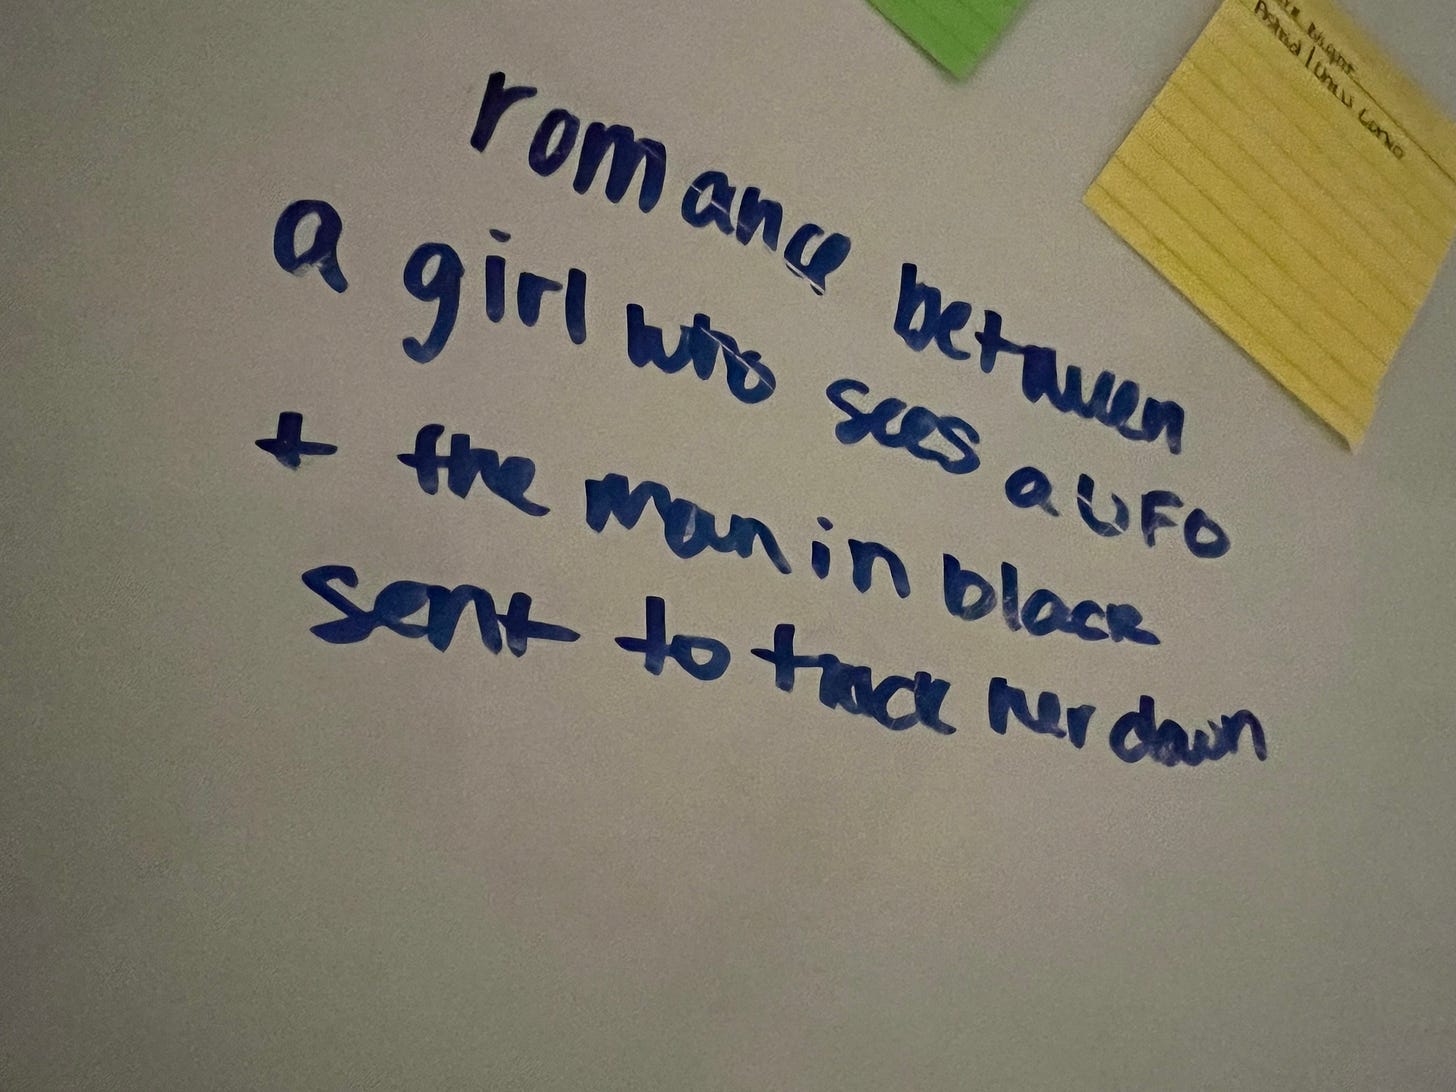 romance between
a girl who sees a UFO
+ the man in black
sent to track her down